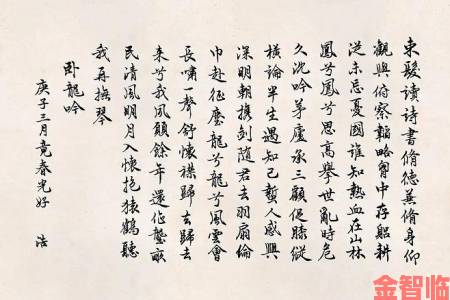 束髮讀詩書脩德兼脩身仰
觀與俯察韜略胷中存躬耕
從未忘憂國誰知熱血在山林
鳳兮鳳兮思高舉世亂時危
久沈吟茅廬承三顧促膝縱
橫論半生遇知己蟄人感興
深明朝攜劍隨君去羽扇綸
巾赴征塵龍兮龍兮風雲會
長嘯一聲舒懷襟歸去歸去
來兮我夙願餘年還作壟畝
民清風明月入懷抱猿鶴聽
我再撫琴
卧龍吟
庚子三月竟春光好
金智临